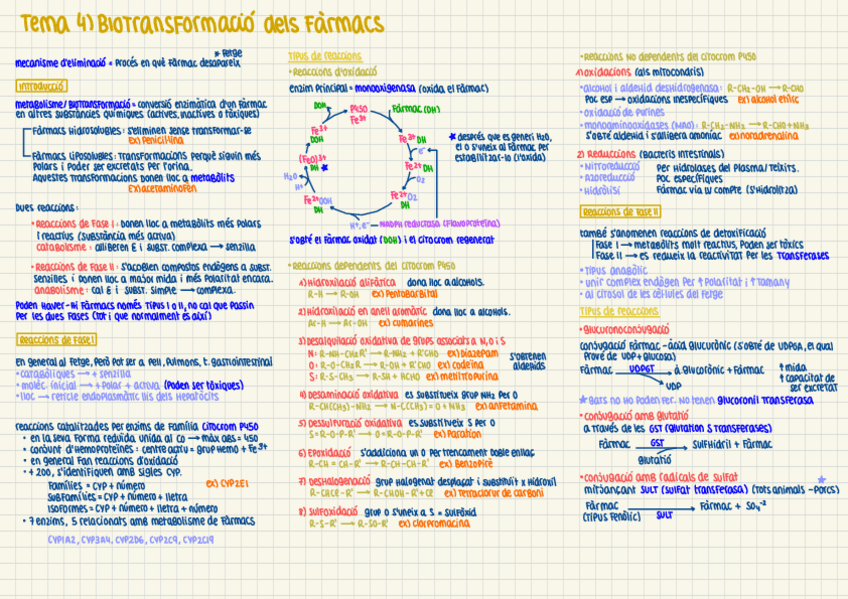 Tema 4) Biotransformació dels Fàrmacs
* Fetge
mecanisme d'eliminació = procés en què fàrmac desapareix
Introducció
metabolisme/biotransformació = conversió enzimàtica d'un fàrmac
en altres substàncies químiques (actives, inactives o tòxiques)
Fàrmacs hidrosolubles: s'eliminen sense transformar-se
ex) Penicil·lina
Fàrmacs liposolubles: transformacions perquè siguin més
polars i poder ser excretats per l'orina.
Aquestes transformacions donen lloc a metabòlits
ex) acetaminofèn
Dues reaccions:
• Reaccions de Fase I: donen lloc a metabòlits més polars
i reactius (substància més activa)
catabolisme: alliberen E i subst. complexa → senzilla
• Reaccions de Fase II: s'acoblen compostos endògens a subst.
senzilles i donen lloc a major mida i més polaritat encara.
anabolisme: cal E i subst. simple → complexa.
Poden haver-hi fàrmacs només tipus I o II, no cal que passin
per les dues fases (tot i que normalment és així)
Reaccions de Fase I
En general al fetge, però pot ser a pell, pulmons, t. gastrointestinal
• catabòliques → + senzilla
• moléc. inicial → + polar + activa (poden ser tòxiques)
• lloc → reticle endoplasmàtic llis dels hepatòcits
reaccions catalitzades per enzims de família citocrom P450
• en la seva forma reduïda unida al CO → màx abs = 450
• conjunt d'hemoproteïnes: centre actiu = grup hemo + Fe³⁺
• en general fan reaccions d'oxidació
• + 200, s'identifiquen amb sigles CYP.
Famílies = CYP + número
ex) CYP2E1
Subfamílies = CYP + número + lletra
Isoformes = CYP + número + lletra + número
• 7 enzims, 5 relacionats amb metabolisme de fàrmacs
CYP1A2, CYP3A4, CYP2D6, CYP2C9, CYP2C19
Tipus de reaccions
• Reaccions d'oxidació
enzim principal = monooxigenasa (oxida el fàrmac)
DOH
P450
Fe³⁺
Fàrmac (DH)
Fe³⁺
DOH
Fe³⁺ DH
e⁻
(FeO)³⁺
DH
Fe²⁺ DH
H₂O
H⁺
O₂
Fe²⁺OOH
DH
Fe²⁺O₂
DH
H⁺, e⁻ — NADPH reductasa (flavoproteïna)
* després que es generi H₂O,
el O s'uneix al fàrmac per
estabilitzar-lo (l'oxida)
s'obté el fàrmac oxidat (DOH) i el citocrom regenerat
• Reaccions dependents del citocrom P450
1) Hidroxilació alifàtica dona lloc a alcohols.
R-H → R-OH ex) pentobarbital
2) Hidroxilació en anell aromàtic dona lloc a alcohols.
Ar-H → Ar-OH ex) cumarines
3) Desalquilació oxidativa de grups associats a N, O i S
N: R-NH-CH₂R' → R-NH₂ + R'CHO ex) diazepam
O: R-O-CH₂R → R-OH + R'CHO ex) codeïna
S: R-S-CH₃ → R-SH + HCHO ex) metiltiopurina
s'obtenen
aldehids
4) Desaminació oxidativa es substitueix grup NH₂ per O
R-CH(CH₃)-NH₂ → N-C(CH₃)=O + NH₃ ex) anfetamina
5) Desulfuració oxidativa es substitueix S per O
S=R-O-P-R' → O=R-O-P-R' ex) Paration
6) Epoxidació s'addiciona un O per trencament doble enllaç
R-CH=CH-R' → R-CH-CH-R' ex) Benzopirè
7) Deshalogenació grup halogenat desplaçat i substituït x hidroxil
R-CHCl-R' → R-CHOH-R'+Cl ex) Tetraclorur de carboni
8) Sulfoxidació grup O s'uneix a S = sulfòxid
R-S-R' → R-SO-R' ex) clorpromacina
• Reaccions no dependents del citocrom P450
1) oxidacions (als mitocondris)
• alcohol i aldehid deshidrogenasa: R-CH₂-OH → R-CHO
Poc esp → oxidacions inespecífiques ex) alcohol etílic
• oxidació de purines
• monoaminooxidases (MAO): R-CH₂-NH₂ → R-CHO+NH₃
s'obté aldehid i s'allibera amoníac ex) noradrenalina
2) Reduccions (bacteris intestinals)
• Nitroreducció
• Azoreducció
• Hidròlisi
Per hidrolases del plasma/teixits.
Poc específiques
Fàrmac via IV compte (s'hidrolitza)
Reaccions de Fase II
també s'anomenen reaccions de detoxificació
Fase I → metabòlits molt reactius, poden ser tòxics
Fase II → es redueix la reactivitat per les transferases
• Tipus anabòlic
• unir complex endògen per ↑ polaritat i ↑ tamany
• al citosol de les cèl·lules del fetge
Tipus de reaccions
• glucuronoconjugació
conjugació fàrmac - àcid glucurònic (s'obté de UDPGA, el qual
prové de UDP + glucosa)
Fàrmac UDPGT → à. glucurònic + fàrmac
UDP
↑ mida
↑ capacitat de
ser excretat
* Gats no ho poden fer. No tenen glucoronil transferasa
• conjugació amb glutatió
a través de les GST (glutation S transferases)
Fàrmac GST → sulfhidril + fàrmac
glutatió
• conjugació amb radicals de sulfat
mitjançant SULT (sulfat transferasa) (tots animals - porcs)
Fàrmac → Fàrmac + SO₄⁻²
(tipus fenòlic) SULT